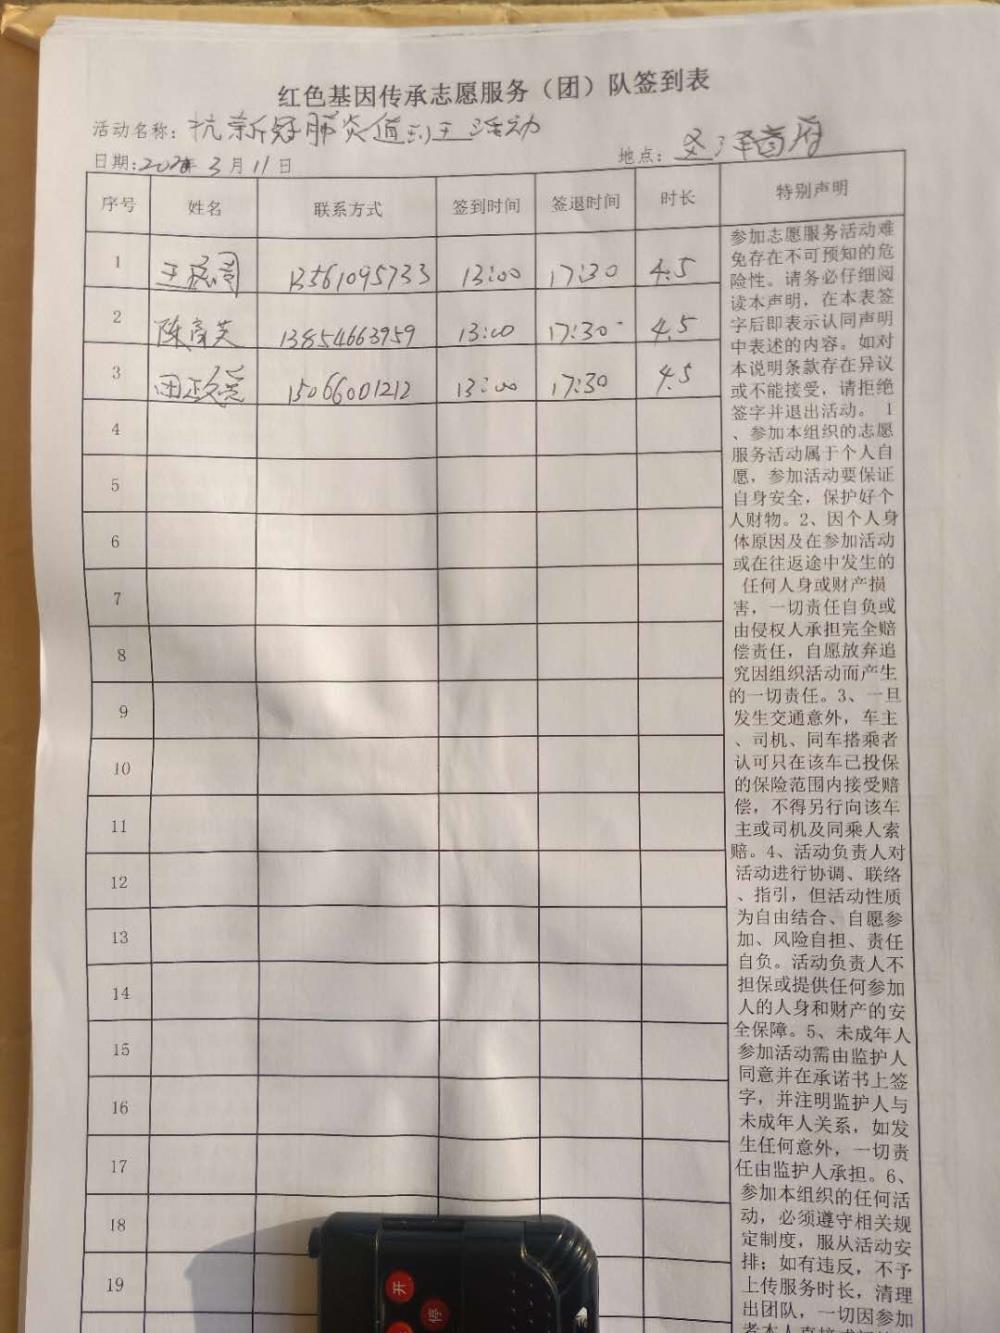 红色基因传承志愿服务（团）队签到表
活动名称：抗新冠肺炎值 活动
日期:2020年3月11日
地点： 泽首府
序号 姓名 联系方式 签到时间 签退时间 时长 特别声明
1 王 13561095733 13:00 17:30 4.5
2 陈 英 13854663959 13:00 17:30 4.5
3 田 15066001212 13:00 17:30 4.5
4
5
6
7
8
9
10
11
12
13
14
15
16
17
18
19
参加志愿服务活动难
免存在不可预知的危
险性。请务必仔细阅
读本声明，在本表签
字后即表示认同声明
中表述的内容。如对
本说明条款存在异议
或不能接受，请拒绝
签字并退出活动。 1
、参加本组织的志愿
服务活动属于个人自
愿，参加活动要保证
自身安全，保护好个
人财物。2、因个人身
体原因及在参加活动
或在往返途中发生的
任何人身或财产损
害，一切责任自负或
由侵权人承担完全赔
偿责任，自愿放弃追
究因组织活动而产生
的一切责任。3、一旦
发生交通意外，车主
、司机、同车搭乘者
认可只在该车已投保
的保险范围内接受赔
偿，不得另行向该车
主或司机及同乘人索
赔。4、活动负责人对
活动进行协调、联络
、指引，但活动性质
为自由结合、自愿参
加、风险自担、责任
自负。活动负责人不
担保或提供任何参加
人的人身和财产的安
全保障。5、未成年人
参加活动需由监护人
同意并在承诺书上签
字，并注明监护人与
未成年人关系，如发
生任何意外，一切责
任由监护人承担。6、
参加本组织的任何活
动，必须遵守相关规
定制度，服从活动安
排；如有违反，不予
上传服务时长，清理
出团队，一切因参加
开
停